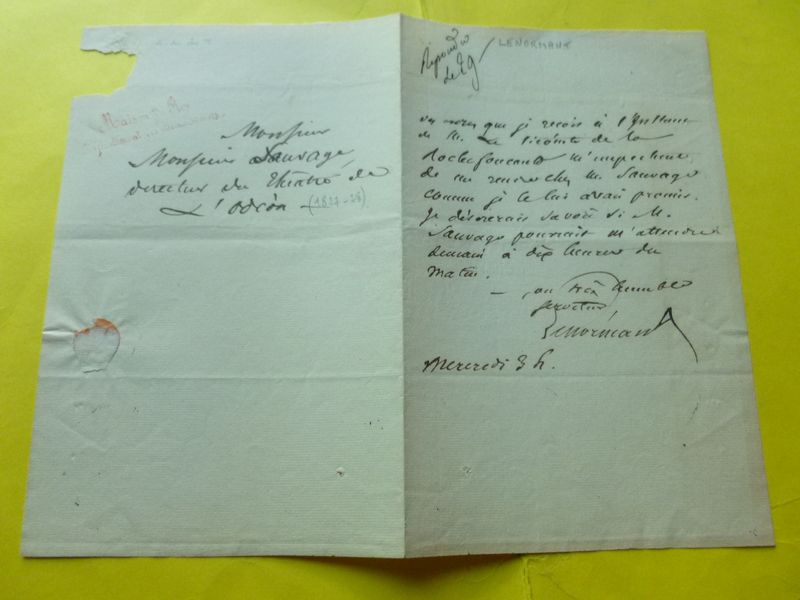 Maison du Roi
Monsieur
Monsieur Sauvage,
directeur du Théâtre de
L'Odéon (1827-28)
Répondu
le 29
LENORMANT
que je reçois à l'instant
de M. Le Vicomte de la
Rochefoucault m'empêchent
de me rendre chez M. Sauvage
comme je le lui avais promis.
Je désirerais savoir si M.
Sauvage pourrait m'attendre
demain à dix heures du
matin.
— son très humble
serviteur
Lenormant
Mercredi 3 h.